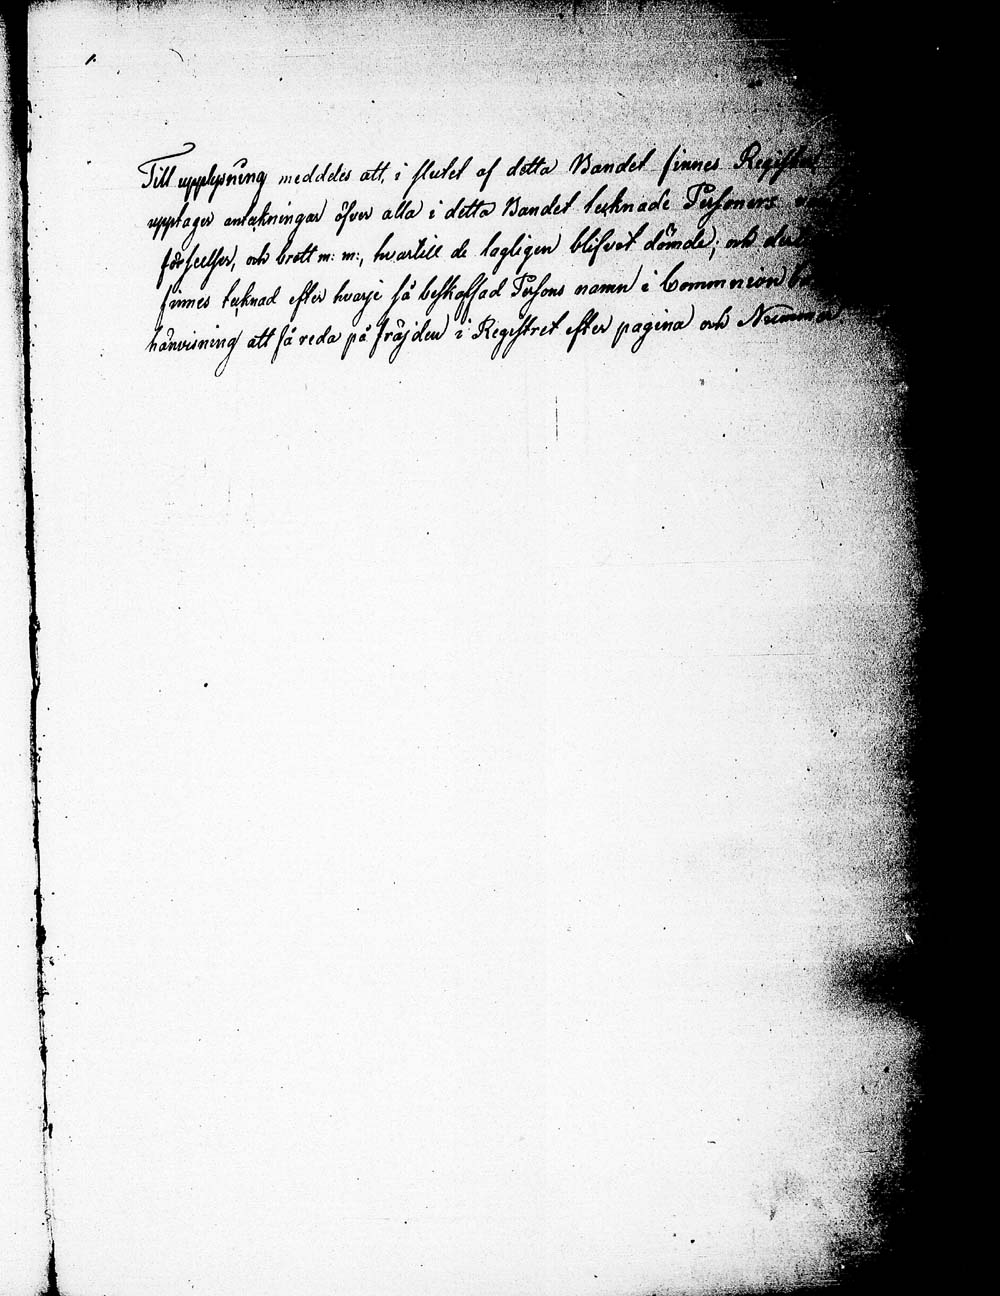 Till upplysning meddeles att, i slutet af detta Bandet finnes
upptager antekningar öfver alla i detta Bandet teknade Personers
förseelser, och brott m: m:, hvartill de lagligen blifvet dömde; och
finnes teknad efter hvarje så beskaffad Persons namn i Communion
hänvisning att få reda på fräjden i Registret efter pagina och Nummer